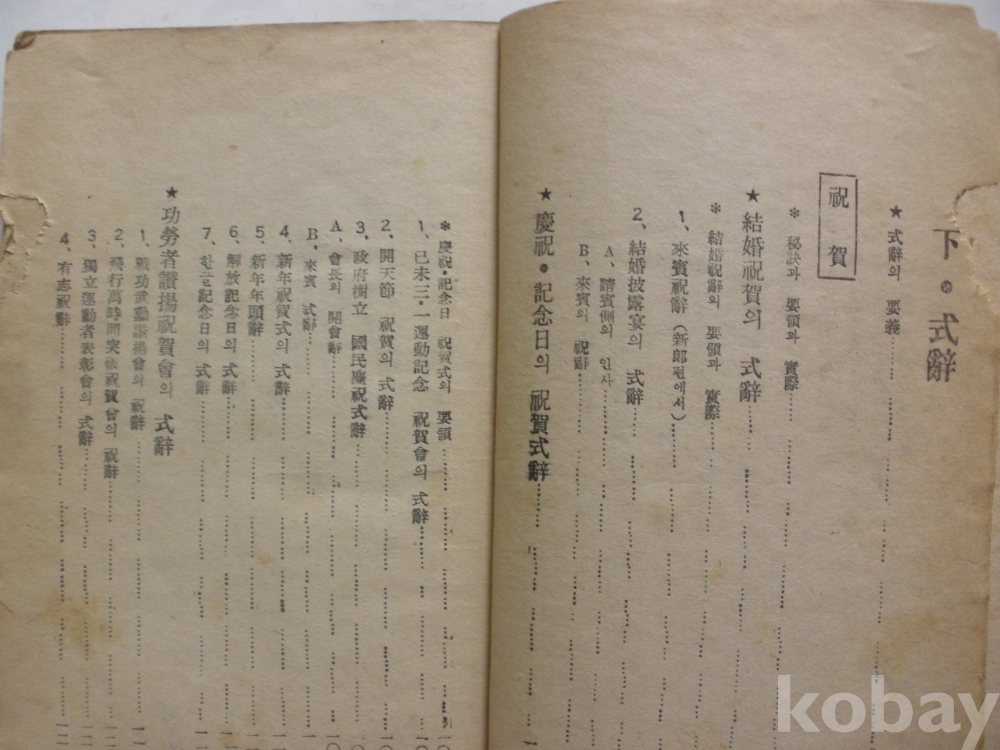 下・式辭
★ 式辭의 要義
祝賀
＊ 秘訣과 要領과 實際
★ 結婚祝賀의 式辭
＊ 結婚祝辭의 要領과 實際
1、來賓祝辭（新郎편에서）
2、結婚披露宴의 式辭
A、請賓側의 인사
B、來賓의 祝辭
★ 慶祝・記念日의 祝賀式辭
＊ 慶祝・記念日 祝賀式의 要領
1、己未三・一運動記念 祝賀會의 式辭
2、開天節 祝賀의 式辭
3、政府樹立 國民慶祝式辭
A、會長의 開會辭
B、來賓 式辭
4、新年祝賀式의 式辭
5、新年年頭辭
6、解放記念日의 式辭
7、한글記念日의 式辭
★ 功勞者讃揚祝賀會의 式辭
1、戰功武勳讃揚會의 祝辭
2、飛行萬時間突破祝賀會의 祝辭
3、獨立運動者表彰會의 式辭
4、有志祝辭
kobay